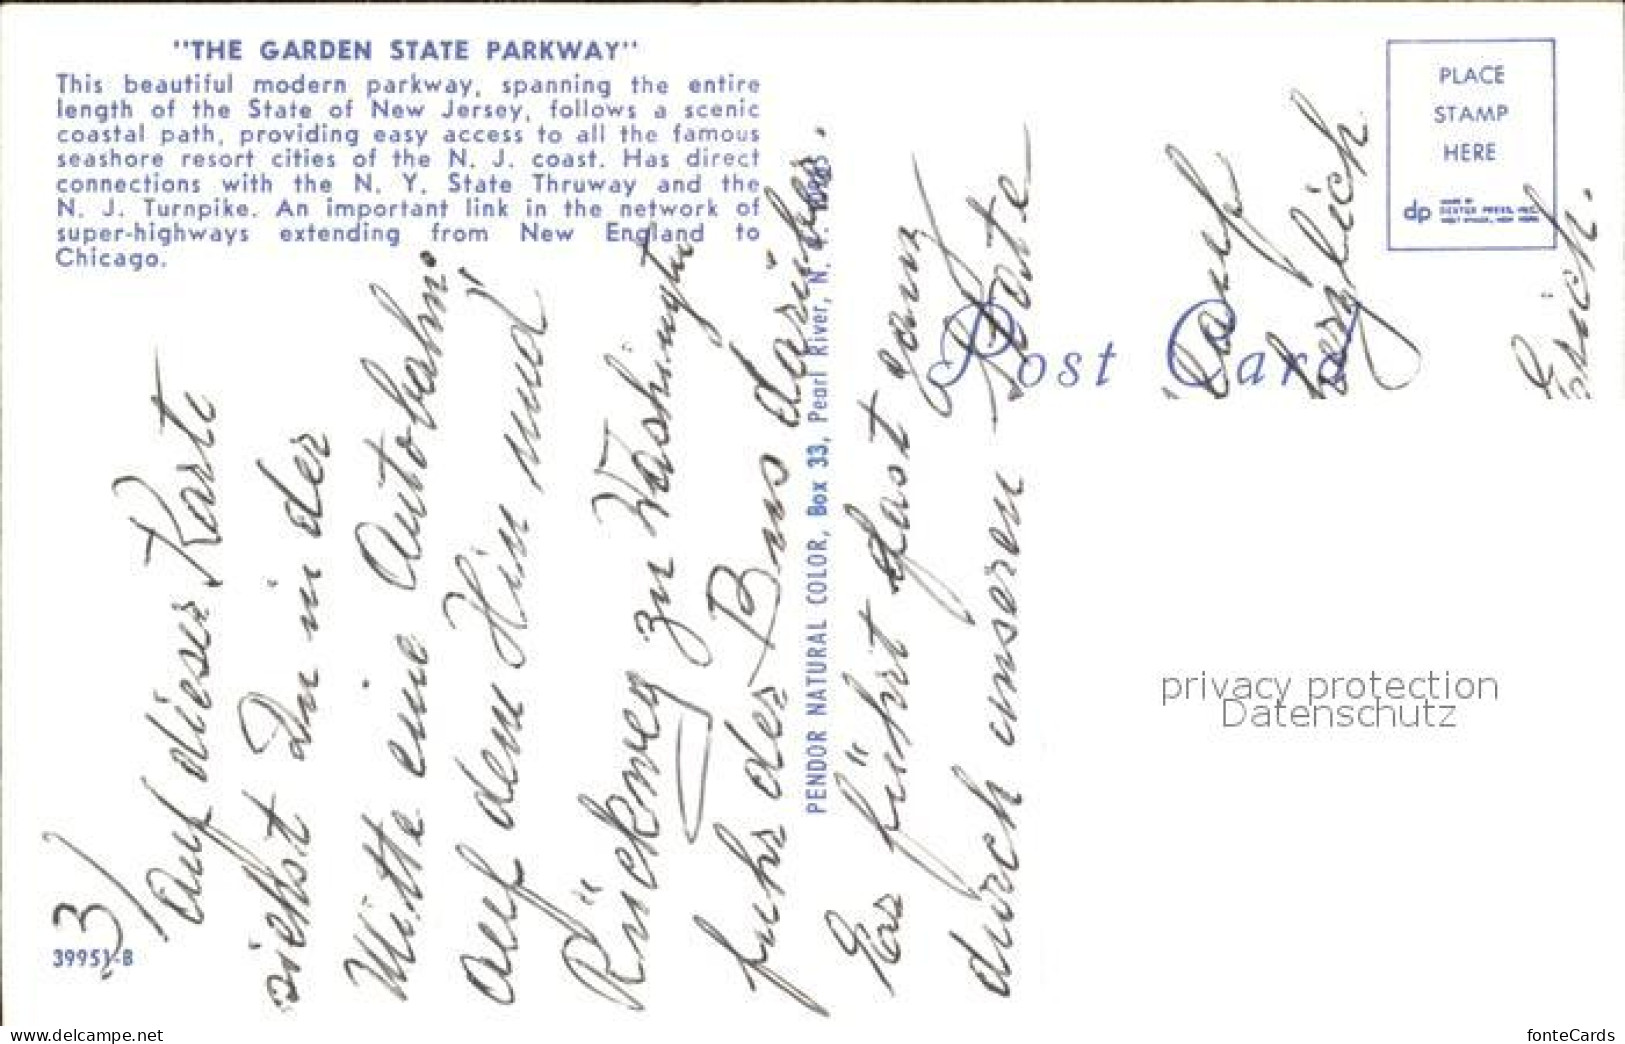 "THE GARDEN STATE PARKWAY"
This beautiful modern parkway, spanning the entire
length of the State of New Jersey, follows a scenic
coastal path, providing easy access to all the famous
seashore resort cities of the N. J. coast. Has direct
connections with the N. Y. State Thruway and the
N. J. Turnpike. An important link in the network of
super-highways extending from New England to
Chicago.
39951-B
3)
Auf dieser Karte
siehst Du in der
Mitte eine Autobahn.
Auf dem Hin und
Rückweg zu Washington
fuhr der Bus darüber.
Er führt fast ganz
durch unseren State
PENDOR NATURAL COLOR, Box 33, Pearl River, N. Y.
Post Card
PLACE
STAMP
HERE
dp
MADE BY
DEXTER PRESS, INC.
WEST NYACK, NEW YORK
herzlich
Erich.
privacy protection
Datenschutz
www.delcampe.net
fonteCards